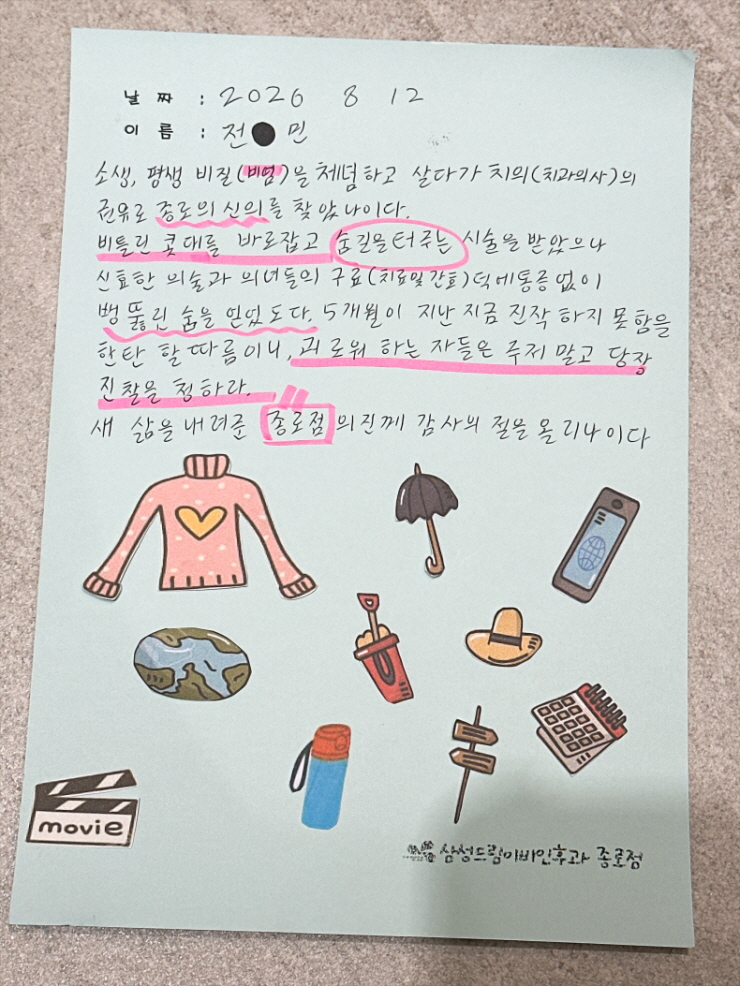 날 짜 : 2026 8 12
이 름 : 전 민
소생, 평생 비질(비염)을 체념하고 살다가 치의(치과의사)의
권유로 종로의 신의를 찾았나이다.
비틀린 콧대를 바로잡고 숨길을 터주는 시술을 받았으나
신효한 의술과 의녀들의 구료(치료및간호)덕에 통증 없이
뻥 뚫린 숨을 얻었도다. 5개월이 지난 지금 진작 하지 못함을
한탄 할 따름이니, 괴로워 하는 자들은 주저 말고 당장
진찰을 청하라.
새 삶을 내려준 종로점 의진께 감사의 절을 올리나이다
movie
삼성드림이비인후과 종로점